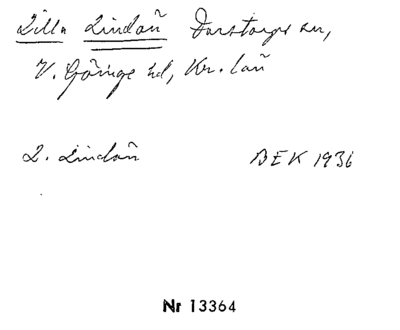 Lilla Lindåñ Farstorps sn,
V. Göinge hd, Kr. lañ
L. Lindåñ BEK 1936
Nr 13364